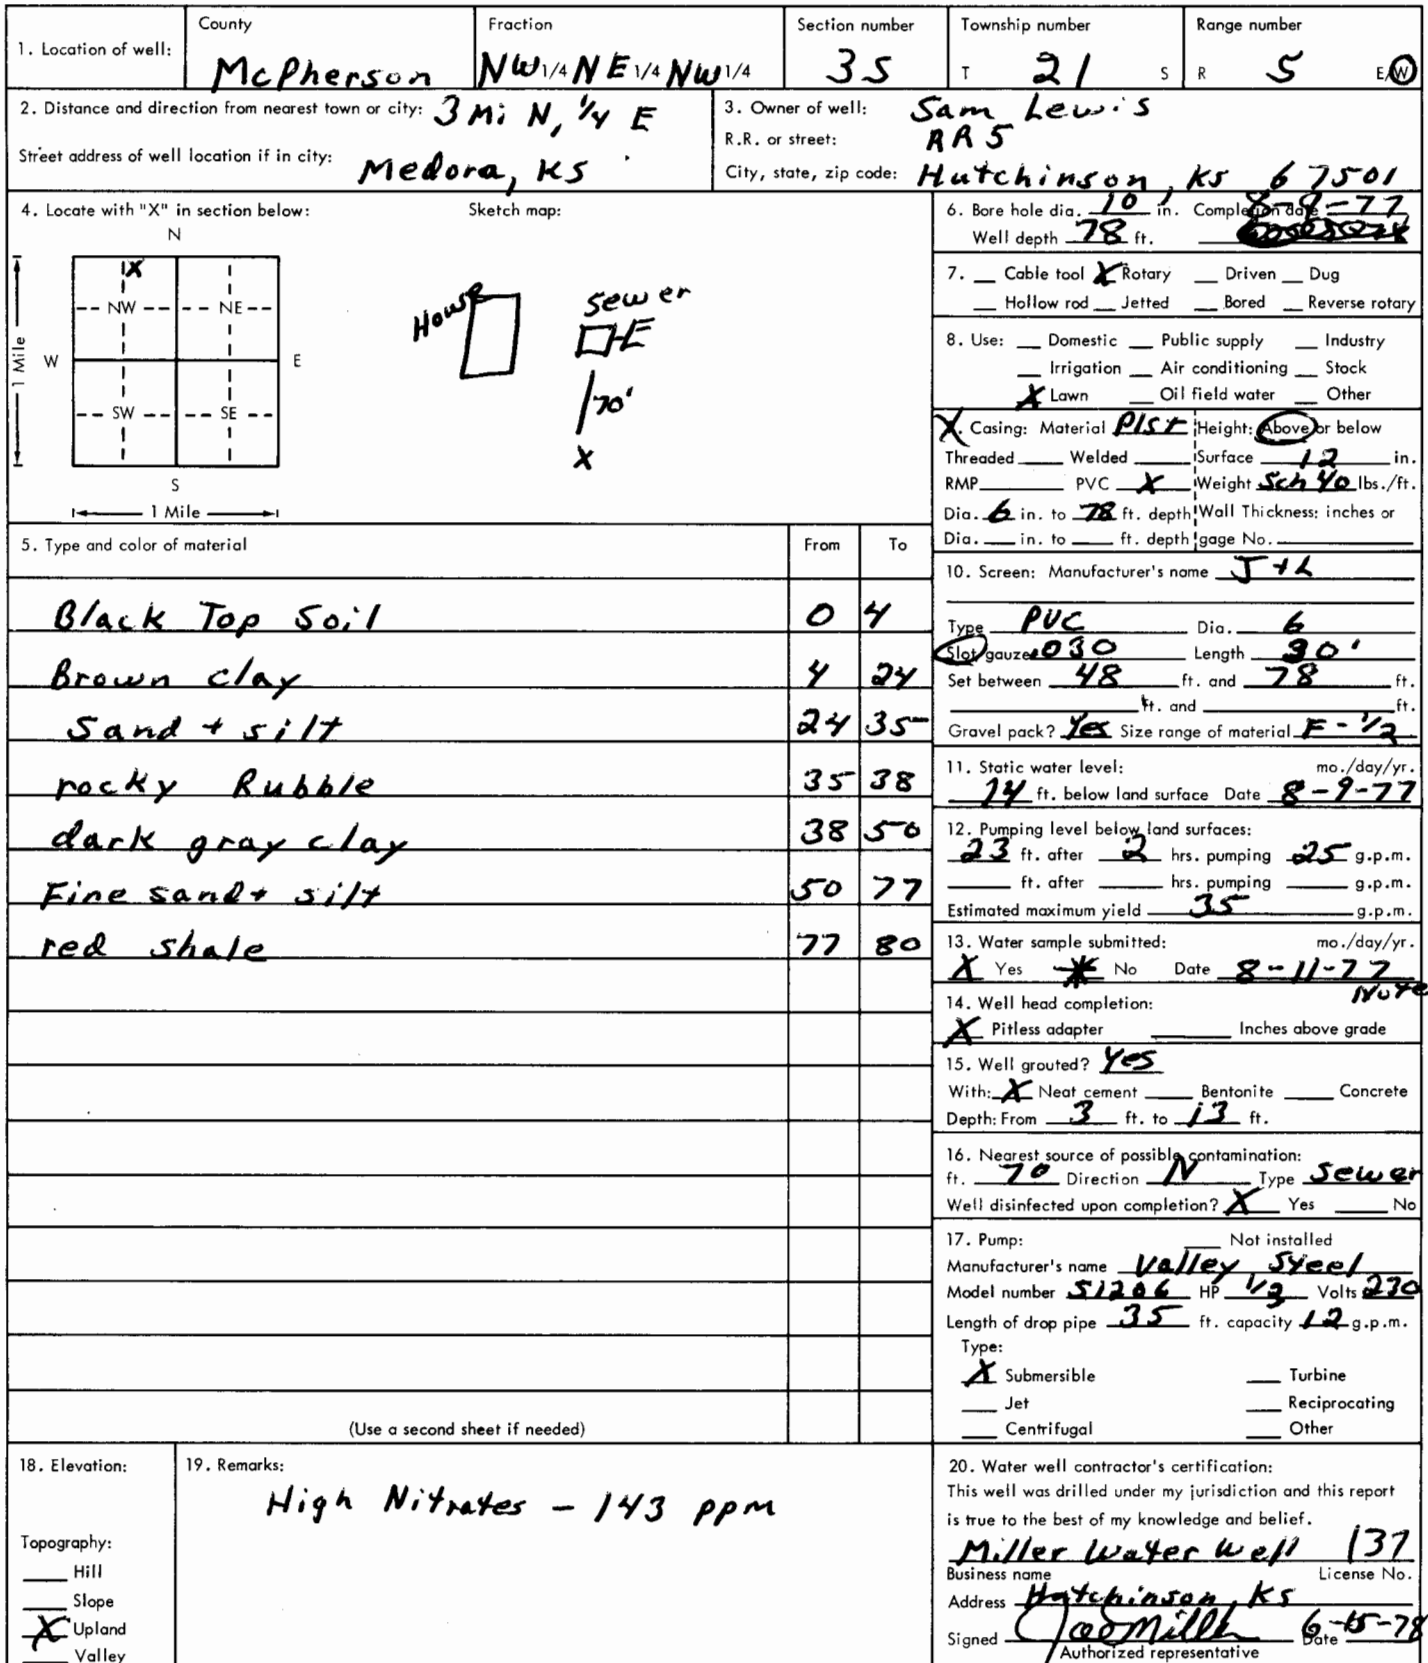 1. Location of well:
County
McPherson
Fraction
NW 1/4 NE 1/4 NW 1/4
Section number
35
Township number
T 21 S
Range number
R 5 E/W
2. Distance and direction from nearest town or city: 3 Mi N, 1/4 E
Street address of well location if in city: Medora, KS
3. Owner of well: Sam Lewis
R.R. or street: RR5
City, state, zip code: Hutchinson, KS 67501
4. Locate with "X" in section below:
Sketch map:
N
X
NW NE
W E
SW SE
S
1 Mile
1 Mile
House
Sewer
70'
X
5. Type and color of material From To
Black Top Soil 0 4
Brown clay 4 24
Sand + silt 24 35
rocky Rubble 35 38
dark gray clay 38 50
Fine sand + silt 50 77
red shale 77 80
(Use a second sheet if needed)
6. Bore hole dia. 10 in. Completion date 8-9-77
Well depth 78 ft.
7. __ Cable tool X Rotary __ Driven __ Dug
__ Hollow rod __ Jetted __ Bored __ Reverse rotary
8. Use: __ Domestic __ Public supply __ Industry
__ Irrigation __ Air conditioning __ Stock
X Lawn __ Oil field water __ Other
X. Casing: Material Plst Height: Above or below
Threaded ____ Welded ____ Surface 12 in.
RMP ____ PVC X Weight Sch 40 lbs./ft.
Dia. 6 in. to 78 ft. depth Wall Thickness: inches or
Dia. __ in. to __ ft. depth gage No. ____
10. Screen: Manufacturer's name J + L
Type PVC Dia. 6
Slot/gauze .030 Length 30'
Set between 48 ft. and 78 ft.
____ ft. and ____ ft.
Gravel pack? Yes Size range of material F - 1/2
11. Static water level: mo./day/yr.
14 ft. below land surface Date 8-9-77
12. Pumping level below land surfaces:
23 ft. after 2 hrs. pumping 25 g.p.m.
____ ft. after ____ hrs. pumping ____ g.p.m.
Estimated maximum yield 35 g.p.m.
13. Water sample submitted: mo./day/yr.
X Yes No Date 8-11-77
Note
14. Well head completion:
X Pitless adapter ____ Inches above grade
15. Well grouted? Yes
With: X Neat cement ____ Bentonite ____ Concrete
Depth: From 3 ft. to 13 ft.
16. Nearest source of possible contamination:
ft. 70 Direction N Type Sewer
Well disinfected upon completion? X Yes ____ No
17. Pump: ____ Not installed
Manufacturer's name Valley Steel
Model number S1206 HP 1/3 Volts 230
Length of drop pipe 35 ft. capacity 12 g.p.m.
Type:
X Submersible ____ Turbine
____ Jet ____ Reciprocating
____ Centrifugal ____ Other
18. Elevation:
Topography:
____ Hill
____ Slope
X Upland
____ Valley
19. Remarks:
High Nitrates - 143 ppm
20. Water well contractor's certification:
This well was drilled under my jurisdiction and this report
is true to the best of my knowledge and belief.
Miller Water Well 137
Business name License No.
Address Hutchinson, KS
Signed Joe Miller Date 6-15-78
Authorized representative